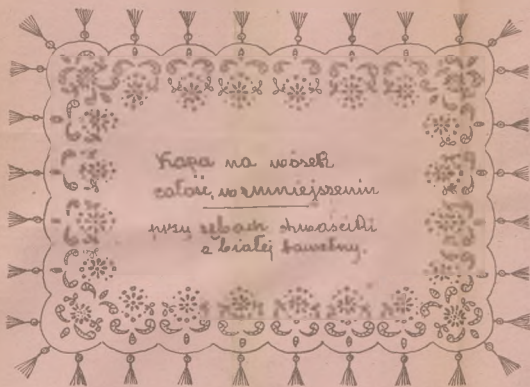 Kapa na wózek
całość, w zmniejszeniu
przy zębach chwaściki
z białej bawełny.